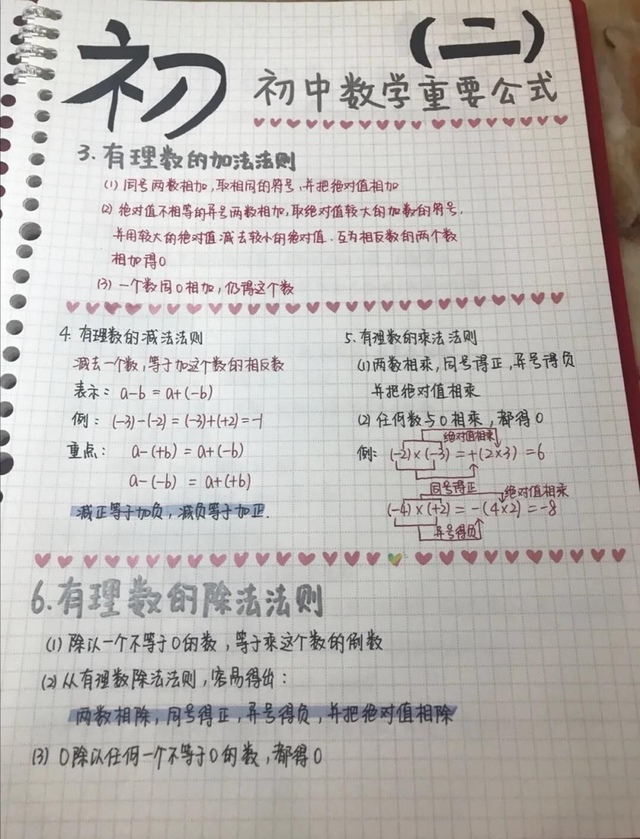 初
(二)
初中数学重要公式
3.有理数的加法法则
(1) 同号两数相加,取相同的符号,并把绝对值相加
(2) 绝对值不相等的异号两数相加,取绝对值较大的加数的符号,
并用较大的绝对值减去较小的绝对值.互为相反数的两个数
相加得0
(3) 一个数同0相加,仍得这个数
4. 有理数的减法法则
减去一个数,等于加这个数的相反数
表示: a-b = a+(-b)
例: (-3)-(-2) = (-3)+(+2) = -1
重点: a-(+b) = a+(-b)
a-(-b) = a+(+b)
减正等于加负,减负等于加正.
5.有理数的乘法法则
(1)两数相乘,同号得正,异号得负
并把绝对值相乘
(2) 任何数与0相乘,都得0
绝对值相乘
例: (-2)×(-3) = +(2×3) = 6
同号得正
绝对值相乘
(-4)×(+2) = -(4×2) = -8
异号得负
6.有理数的除法法则
(1) 除以一个不等于0的数,等于乘这个数的倒数
(2) 从有理数除法法则,容易得出:
两数相除,同号得正,异号得负,并把绝对值相除
(3) 0除以任何一个不等于0的数,都得0